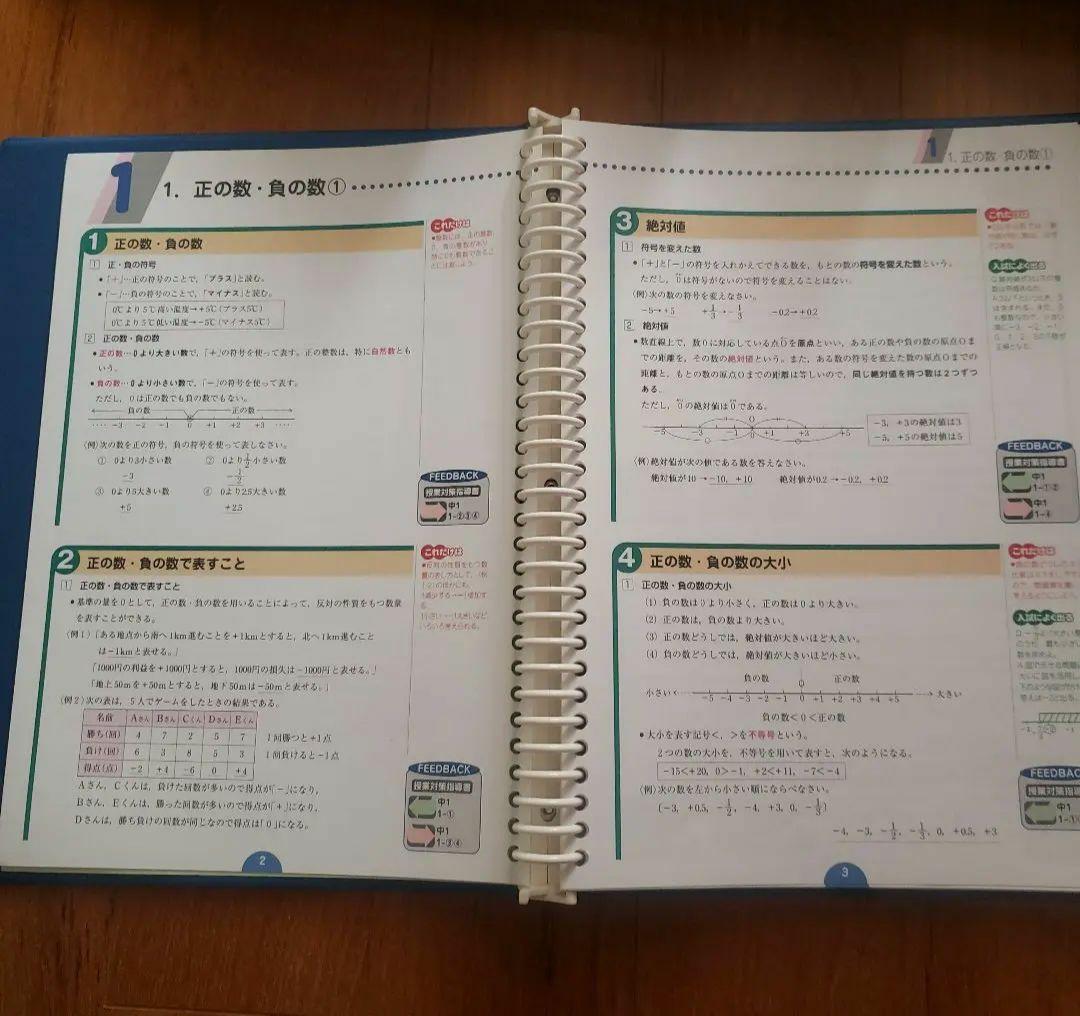 1
1. 正の数・負の数①
1 正の数・負の数
1 正・負の符号
●「＋」…正の符号のことで,「プラス」と読む。
●「－」…負の符号のことで,「マイナス」と読む。
0℃より5℃高い温度→＋5℃(プラス5℃)
0℃より5℃低い温度→－5℃(マイナス5℃)
2 正の数・負の数
●正の数…0より大きい数で,「＋」の符号を使って表す。正の整数は, 特に自然数とも
いう。
●負の数…0より小さい数で,「－」の符号を使って表す。
ただし, 0は正の数でも負の数でもない。
負の数 正の数
…… －3 －2 －1 0 ＋1 ＋2 ＋3 ……
(例)次の数を正の符号, 負の符号を使って表しなさい。
① 0より3小さい数 ② 0より1/2小さい数
－3 －1/2
③ 0より5大きい数 ④ 0より2.5大きい数
＋5 ＋2.5
これだけは
FEEDBACK
授業対策指導書
中1
1-②③④
2 正の数・負の数で表すこと
1 正の数・負の数で表すこと
●基準の量を0として, 正の数・負の数を用いることによって, 反対の性質をもつ数量
を表すことができる。
(例1)「ある地点から南へ1km進むことを＋1kmとすると, 北へ1km進むこと
は－1kmと表せる。」
「1000円の利益を＋1000円とすると, 1000円の損失は－1000円と表せる。」
「地上50mを＋50mとすると, 地下50mは－50mと表せる。」
(例2)次の表は, 5人でゲームをしたときの結果である。
名前 Aさん Bさん Cくん Dさん Eくん
勝ち(回) 4 7 2 5 7
負け(回) 6 3 8 5 3
得点(点) －2 ＋4 －6 0 ＋4
1回勝つと＋1点
1回負けると－1点
Aさん, Cくんは, 負けた回数が多いので得点が「－」になり,
Bさん, Eくんは, 勝った回数が多いので得点が「＋」になり,
Dさんは, 勝ち負けの回数が同じなので得点は「0」になる。
これだけは
FEEDBACK
授業対策指導書
中1
1-①
中1
1-③④
2
1
1. 正の数・負の数①
3 絶対値
1 符号を変えた数
●「＋」と「－」の符号を入れかえてできる数を, もとの数の符号を変えた数という。
ただし, 0は符号がないので符号を変えることはない。
(例)次の数の符号を変えなさい。
－5→＋5 ＋1/3→－1/3 －0.2→＋0.2
2 絶対値
●数直線上で, 数0に対応している点Oを原点といい, ある正の数や負の数の原点Oま
での距離を, その数の絶対値という。また, ある数の符号を変えた数の原点Oまでの
距離と, もとの数の原点Oまでの距離は等しいので, 同じ絶対値を持つ数は2つずつ
ある。
ただし, 0の絶対値は0である。
－5 －3 －1 0 ＋1 ＋3 ＋5
－3, ＋3の絶対値は3
－5, ＋5の絶対値は5
(例)絶対値が次の値である数を答えなさい。
絶対値が10→－10, ＋10 絶対値が0.2→－0.2, ＋0.2
これだけは
入試によく出る
FEEDBACK
授業対策指導書
中1
1-①②
中1
1-④
4 正の数・負の数の大小
1 正の数・負の数の大小
(1) 負の数は0より小さく, 正の数は0より大きい。
(2) 正の数は, 負の数より大きい。
(3) 正の数どうしでは, 絶対値が大きいほど大きい。
(4) 負の数どうしでは, 絶対値が大きいほど小さい。
負の数 0 正の数
小さい －5 －4 －3 －2 －1 0 ＋1 ＋2 ＋3 ＋4 ＋5 大きい
負の数＜0＜正の数
●大小を表す記号＜, ＞を不等号という。
2つの数の大小を, 不等号を用いて表すと, 次のようになる。
－15＜＋20, 0＞－1, ＋2＜＋11, －7＜－4
(例)次の数を左から小さい順にならべなさい。
(－3, ＋0.5, －1/2, －4, ＋3, 0, －1/3)
－4, －3, －1/2, －1/3, 0, ＋0.5, ＋3
これだけは
入試によく出る
FEEDBAC
授業対策指導書
中1
中1
3